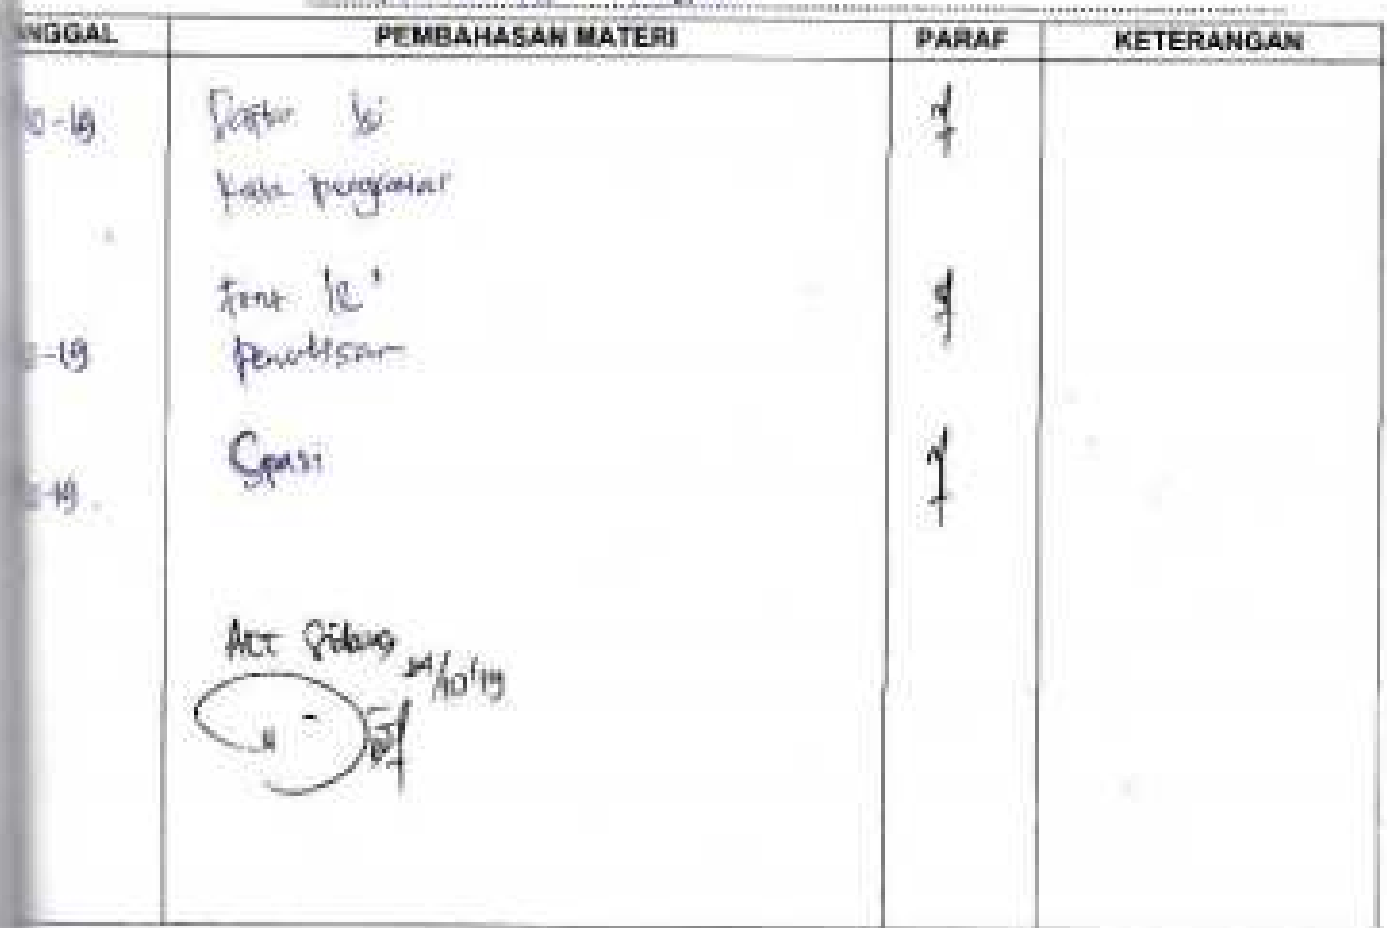 NGGAL PEMBAHASAN MATERI PARAF KETERANGAN
0-19 Daftar isi
Kata pengantar
font 12
-19 penulisan
Spasi
-19
Acc Sidang
/10/19